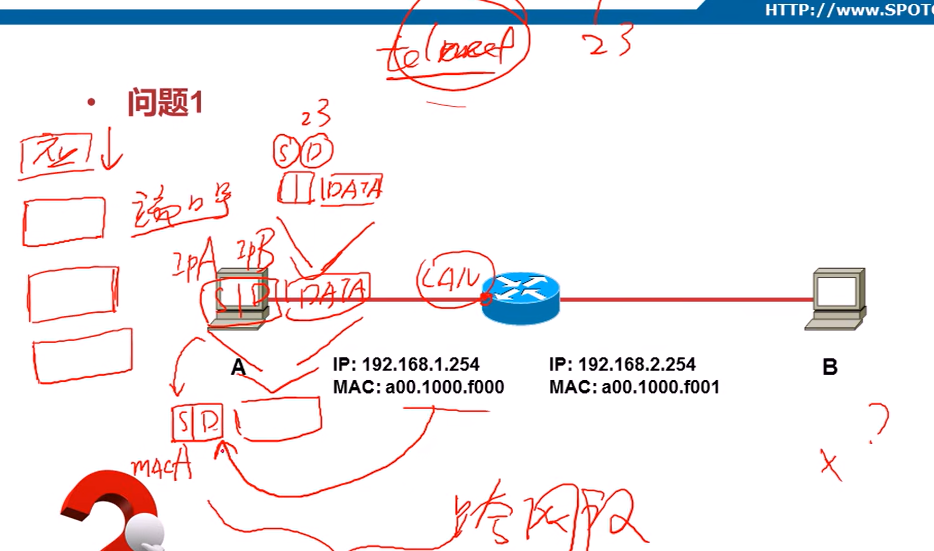 HTTP://www.SPOTO
telnet
23
• 问题1
23
S D
DATA
端口号
IPA IPB
S D DATA
LAN
A
B
IP: 192.168.1.254
MAC: a00.1000.f000
IP: 192.168.2.254
MAC: a00.1000.f001
S D
MACA
?
x
跨网段